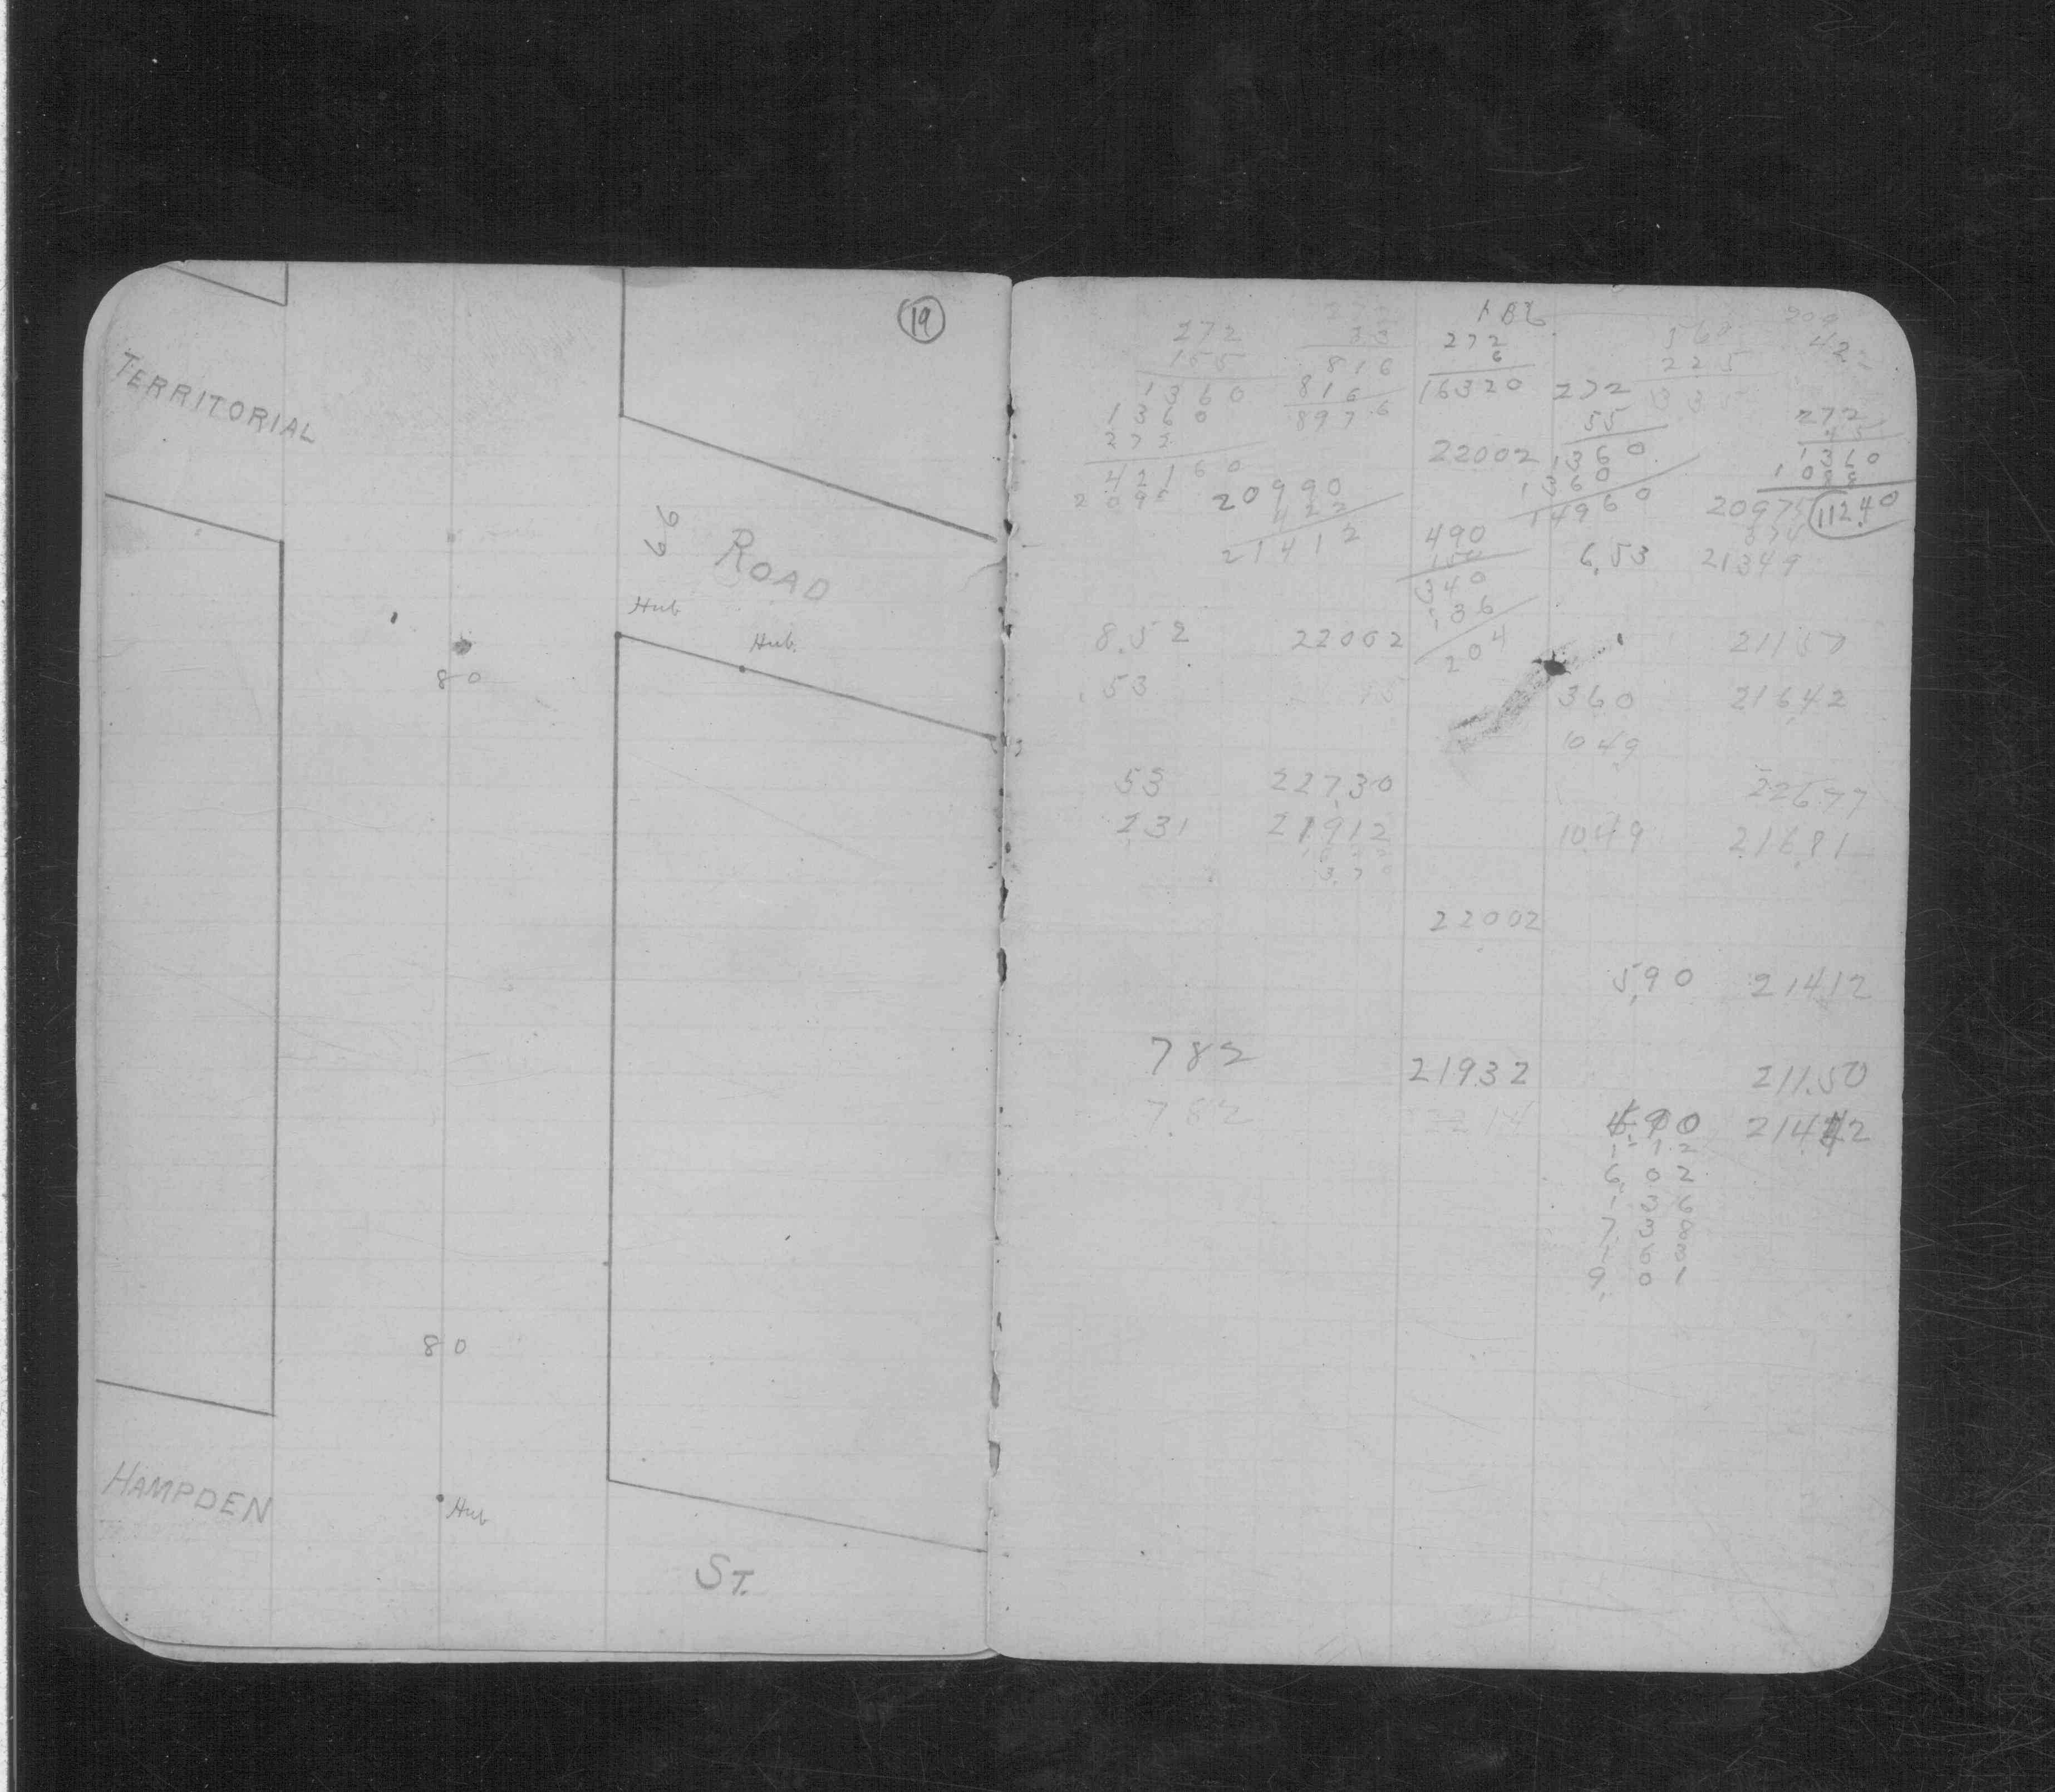 19
TERRITORIAL
66
ROAD
Hub
Hub.
80
80
HAMPDEN
Hub
ST.
272
155
1360
1360
272
42160
816
816
8976
20990
422
21412
272
6
16320
22002
490
150
340
136
204
272
55
1360
1360
14960
6.53
560
225
272
45
1360
1088
112.40
20975
374
21349
8.52 22002 21157
.53 360 21642
1049
53 22730 22677
231 21912 1049 21681
22002
5.90 21412
782 21932 211.50
7.82
4.90 214.42
1 12
6 02
1 36
7 38
9 01